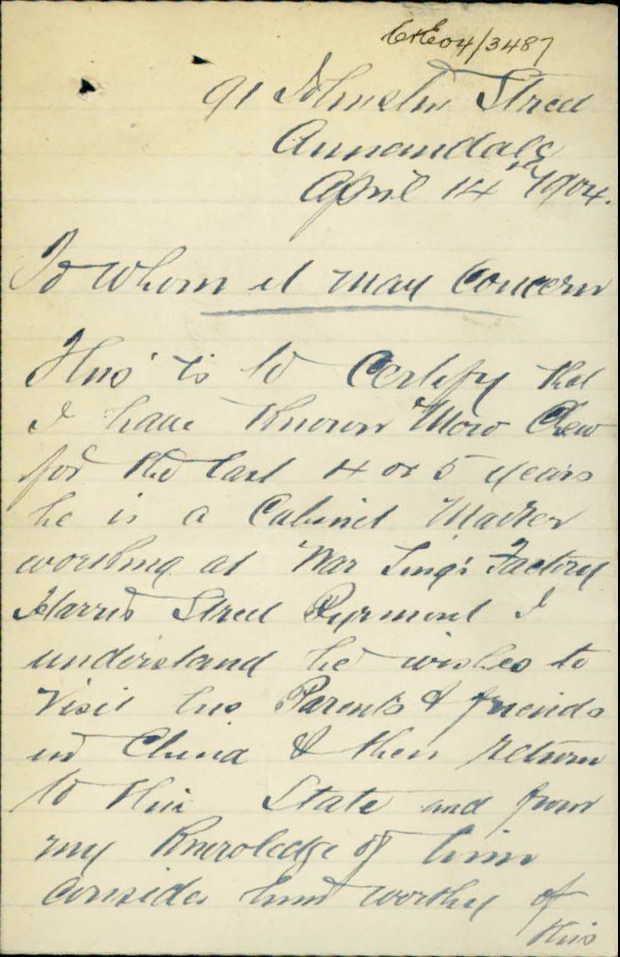 C&E 04/3487
91 Johnston Street
Annandale
April 14th 1904.
To whom it may Concern
This is to Certify that
I have known Mow Chew
for the last 4 or 5 years
he is a Cabinet Maker
working at War Sing's Factory
Harris Street Pyrmont I
understand he wishes to
Visit his Parents & friends
in China & then return
to this State and from
my Knowledge of him
consider him worthy of
this